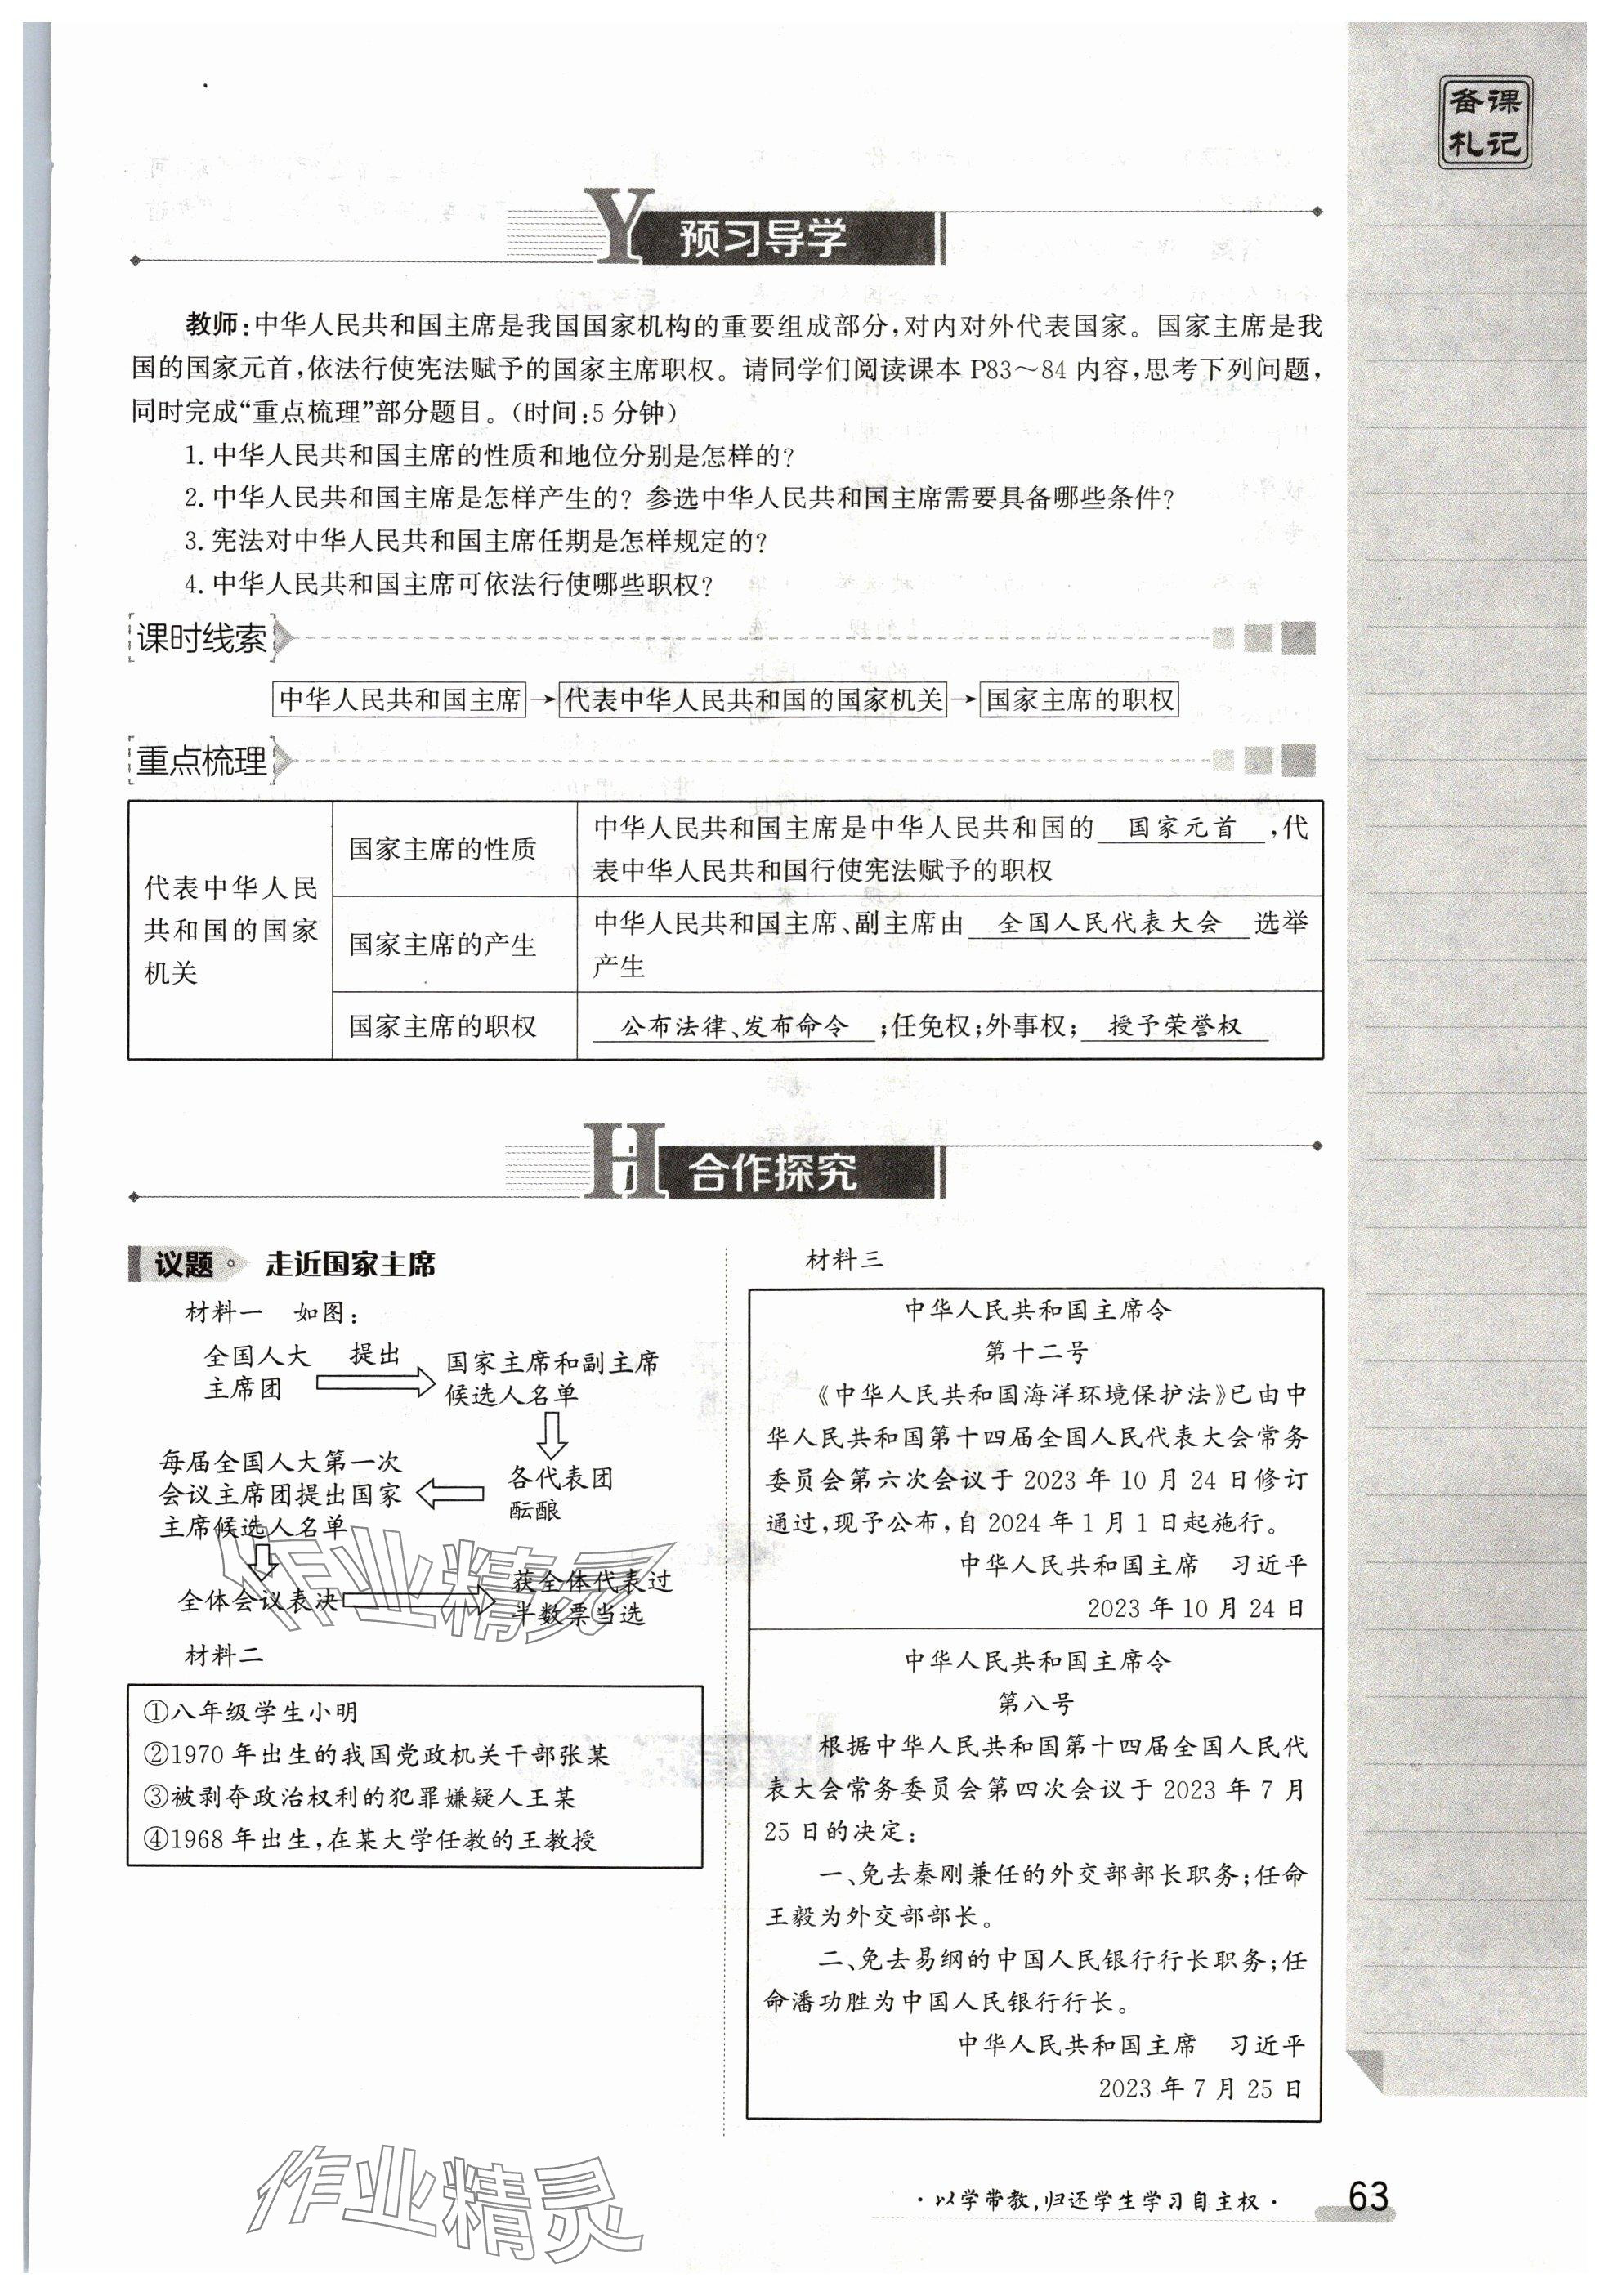 备课
札记
Y 预习导学
教师:中华人民共和国主席是我国国家机构的重要组成部分,对内对外代表国家。国家主席是我
国的国家元首,依法行使宪法赋予的国家主席职权。请同学们阅读课本 P83～84 内容,思考下列问题,
同时完成“重点梳理”部分题目。(时间:5 分钟)
1. 中华人民共和国主席的性质和地位分别是怎样的?
2. 中华人民共和国主席是怎样产生的? 参选中华人民共和国主席需要具备哪些条件?
3. 宪法对中华人民共和国主席任期是怎样规定的?
4. 中华人民共和国主席可依法行使哪些职权?
课时线索
中华人民共和国主席→代表中华人民共和国的国家机关→国家主席的职权
重点梳理
代表中华人民
共和国的国家
机关
国家主席的性质
中华人民共和国主席是中华人民共和国的 国家元首 ,代
表中华人民共和国行使宪法赋予的职权
国家主席的产生
中华人民共和国主席、副主席由 全国人民代表大会 选举
产生
国家主席的职权
公布法律、发布命令 ;任免权;外事权; 授予荣誉权
H 合作探究
议题 走近国家主席
材料一 如图:
全国人大
主席团
提出
国家主席和副主席
候选人名单
各代表团
酝酿
每届全国人大第一次
会议主席团提出国家
主席候选人名单
全体会议表决
获全体代表过
半数票当选
材料二
①八年级学生小明
②1970 年出生的我国党政机关干部张某
③被剥夺政治权利的犯罪嫌疑人王某
④1968 年出生,在某大学任教的王教授
材料三
中华人民共和国主席令
第十二号
《中华人民共和国海洋环境保护法》已由中
华人民共和国第十四届全国人民代表大会常务
委员会第六次会议于 2023 年 10 月 24 日修订
通过,现予公布,自 2024 年 1 月 1 日起施行。
中华人民共和国主席 习近平
2023 年 10 月 24 日
中华人民共和国主席令
第八号
根据中华人民共和国第十四届全国人民代
表大会常务委员会第四次会议于 2023 年 7 月
25 日的决定:
一、免去秦刚兼任的外交部部长职务;任命
王毅为外交部部长。
二、免去易纲的中国人民银行行长职务;任
命潘功胜为中国人民银行行长。
中华人民共和国主席 习近平
2023 年 7 月 25 日
作业精灵
作业精灵
·以学带教,归还学生学习自主权·
63